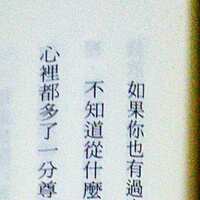 如果你也有過
不知道從什麼
心裡都多了一分尊